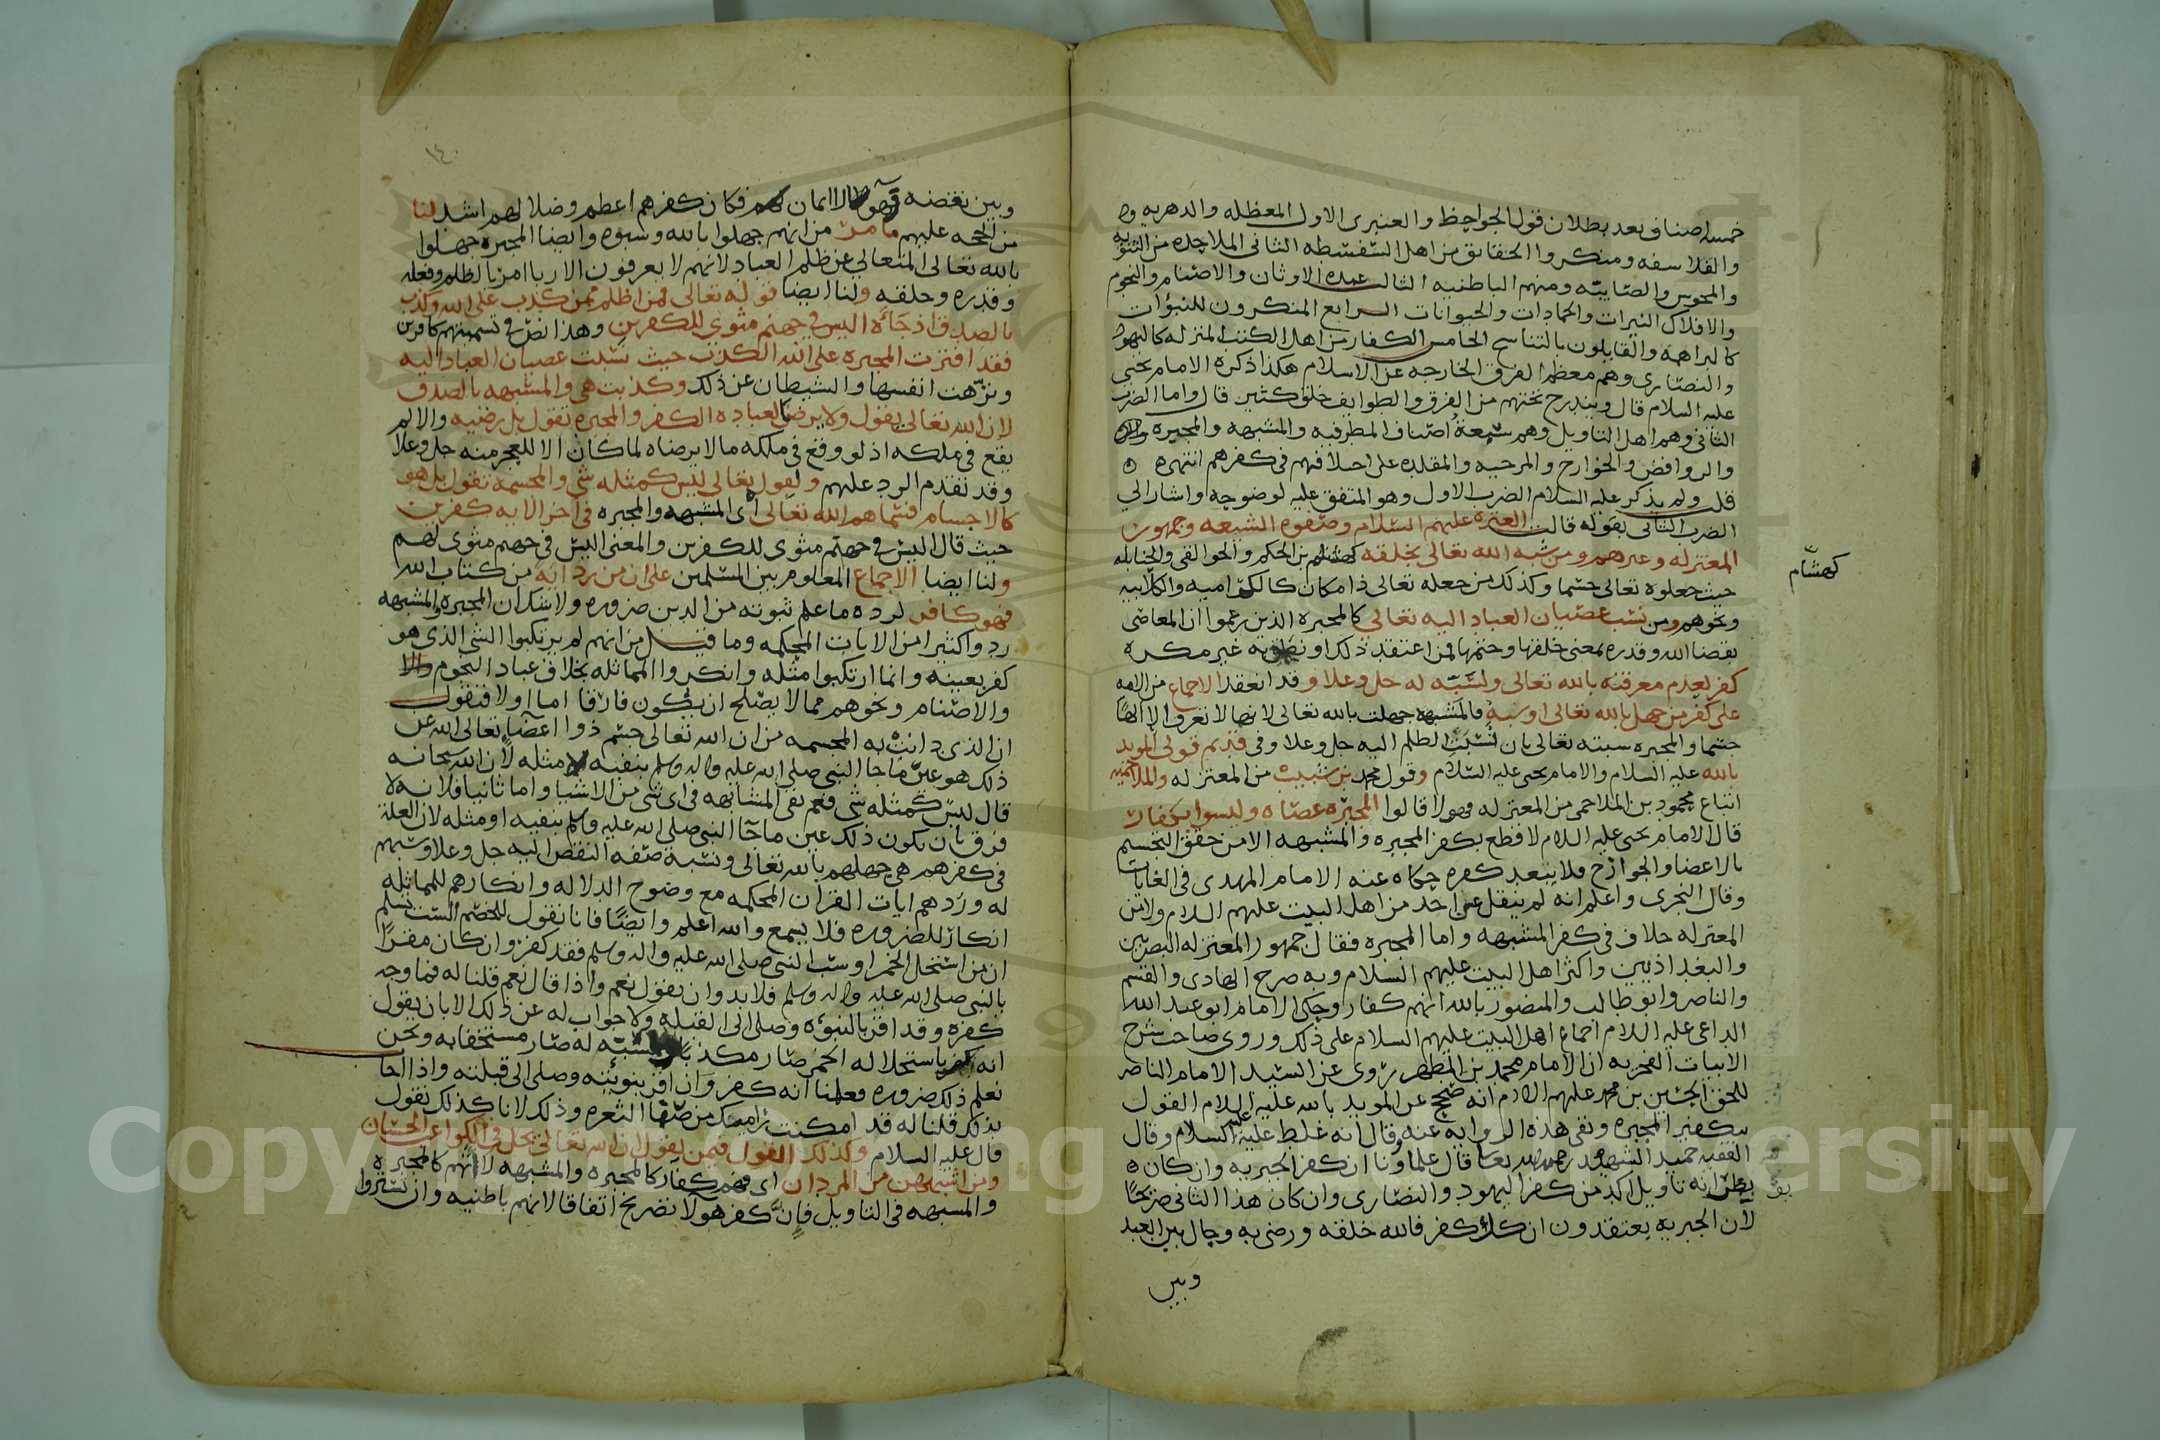 خمسه اصناف بعد بطلان قول الجواحظ والعنبرى الاول المعطله والدهريه
والفلاسفه ومنكروا الحقائق من اهل السفسطه الثانى الملاحده من الثنويه
والمجوس والصابيه ومنهم الباطنيه الثالث عبدة الاوثان والاصنام والنجوم
والافلاك النيرات والجمادات والحيوانات الرابع المنكرون للنبؤات
كالبراهمة والقايلون بالتناسخ الخامس الكفار من اهل الكتب المنزله كاليهود
والنصارى وهم معظم الفرق الخارجه عن الاسلام هكذا ذكره الامام يحيى
عليه السلام قال ويندرج تحتهم من الفرق والطوايف خلق كثير قال واما الضرب
الثانى وهم اهل التاويل وهم سبعة اصناف المطرفيه والمشبهه والمجبره
والروافض والخوارج والمرجيه والمقلده على اختلافهم فى كفرهم انتهى
قلت ولم يذكر عليه السلام الضرب الاول وهو المتفق عليه لوضوحه واشار الى
الضرب الثانى بقوله قالت العتره عليهم السلام وصفوة الشيعه وجمهور
المعتزله وغيرهم ومن شبه الله تعالى بخلقه كهشام بن الحكم والجوالقى والحنابله
كهشام
حيث جعلوه تعالى جسما وكذلك من جعله تعالى ذا مكان كالكراميه والكلابيه
ونحوهم ومن نسب عصيان العباد اليه تعالى كالمجبره الذين زعموا ان المعاصى
بقضا الله وقدره بمعنى خلقها وحتمها فمن اعتقد ذلك او نطق به غير مكره
كفر لعدم معرفته بالله تعالى ولسبه له جل وعلا وقد انعقد الاجماع من الامه
على كفر من جهل بالله تعالى او سبه فالمشبهه جهلت بالله تعالى لانها لا تعرف الا الها
جسما والمجبره سبته تعالى بان نسبت الظلم اليه جل وعلا وفى قديم قولى المويد
بالله عليه السلام والامام يحيى عليه السلام وقول محمد بن شبيب من المعتزله والملاحميه
اتباع محمود بن الملاحمى من المعتزله فهولا قالوا المجبره عصاه وليسوا بكفار
قال الامام يحيى عليه السلام لا قطع بكفر المجبره والمشبهه الا من حقق التجسيم
بالاعضا والجوارح فلا يبعد كفره حكاه عنه الامام المهدى فى الغايات
وقال النجرى واعلم انه لم ينقل عن احد من اهل البيت عليهم السلام ولا من
المعتزله خلاف فى كفر المشبهه واما المجبره فقال جمهور المعتزله البصريين
والبغداذيين واكثر اهل البيت عليهم السلام وبه صرح الهادى والقسم
والناصر وابو طالب والمنصور بالله انهم كفار وحكى الامام ابو عبد الله
الداعى عليه السلام اجماع اهل البيت عليهم السلام على ذلك وروى صاحب شرح
الابيات الفخريه ان الامام محمد بن المطهر روى عن السيد الامام الناصر
للحق الحسين بن محمد عليهم السلام انه صحح عن المويد بالله عليه السلام القول
بتكفير المجبره ونفى هذه الروايه عنه وقال انه غلط عليه السلام وقال
الفقيه حميد الشهيد رحمه الله تعالى قال علماونا ان كفر الجبريه وان كان
بطرانه تاويل اكد من كفر اليهود والنصارى وان كان هذا الثانى صريحا
لان الجبريه يعتقدون ان كل كفر فالله خلقه ورضى به وحال بين العبد
وبين
١٤٠
وبين نقضه الايمان فكان كفرهم اعظم وضلالهم اشد لنا
من الحجه عليهم ما مر من انهم جهلوا بالله وسبوه وايضا المجبره جهلوا
بالله تعالى المتعالى عن ظلم العباد لانهم لا يعرفون الا ربا امر بالظلم وفعله
وقدره وخلقه ولنا ايضا قوله تعالى فمن اظلم ممن كذب على الله وكذب
بالصدق اذ جاءه اليس فى جهنم مثوى للكفرين وهذا نص فى تسميتهم كافرين
فقد افترت المجبره على الله الكذب حيث نسبت عصيان العباد اليه
ونزهت انفسها والشيطان عن ذلك وكذبت هى والمشبهه بالصدق
لان الله تعالى يقول ولا يرضى لعباده الكفر والمجبره تقول بل رضيه والا لم
يقع فى ملكه اذ لو وقع فى ملكه ما لا يرضاه لما كان الا للعجز منه جل وعلا
وقد تقدم الرد عليهم ولقول تعالى ليس كمثله شى والمجسمه تقول بل هو
كالاجسام فسماهم الله تعالى اى المشبهه والمجبره فى آخر الايه كفرين
حيث قال اليس فى جهنم مثوى للكفرين والمعنى اليس فى جهنم مثوى لهم
ولنا ايضا الاجماع المعلوم بين المسلمين على ان من رد آية من كتاب الله
فهو كافر لرده ما علم ثبوته من الدين ضروره ولا شك ان المجبره والمشبهه
ردوا كثيرا من الايات المحكمه وما قيل من انهم لم يرتكبوا الشى الذى هو
كفر بعينه وانما ارتكبوا مثله وانكروا المماثله بخلاف عباد النجوم
والاصنام ونحوهم مما لا يصلح ان يكون فارقا اما اولا فنقول
ان الذى دانت به المجسمه من ان الله تعالى جسم ذوا اعضا تعالى الله عن
ذلك هو عين ما جا النبى صلى الله عليه واله وسلم بنفيه لا مثله لان الله سبحانه
قال ليس كمثله شى فعم نفى المشابهه فى اى شى من الاشيا واما ثانيا فلانه لا
فرق بان يكون ذلك عين ما جا النبى صلى الله عليه وسلم بنفيه او مثله لان العلة
فى كفرهم هى جهلهم بالله تعالى ونسبة صفه النقص اليه جل وعلا وسبهم
له وردهم ايات القرآن المحكمه مع وضوح الدلاله وانكارهم للمماثله
انكار للضروره فلا يسمع والله اعلم وايضا فانا نقول للخصم الست تسلم
ان من استحل الخمر او سب النبى صلى الله عليه واله وسلم فقد كفر وان كان مقرا
بالنبى صلى الله عليه واله وسلم فلا بد وان يقول نعم واذا قال نعم قلنا له فما وجه
كفره وقد اقر بالنبوه وصلى الى القبله ولا جواب له عن ذلك الا بان يقول
انه كفر باستحلاله الخمر صار مكذبا وبسبه له صار مستخفا به ونحن
نعلم ذلك ضروره فعلمنا انه كفر وان اقر بنبوئته وصلى الى قبلته واذا اجا
بذلك قلنا له قد امكنت رامك من صفا الثغره وذلك لانا كذلك نقول
قال عليه السلام وكذلك القول فيمن يقول ان الله تعالى يحل فى الكواعب الحسان
ومن اشبههن من المردان اى فهم كفار كالمجبره والمشبهه لا انهم كالمجبره
والمسبهه فى التاويل فان كفر هولا تصريح اتفاقا لانهم باطنيه وان تستروا
Copy